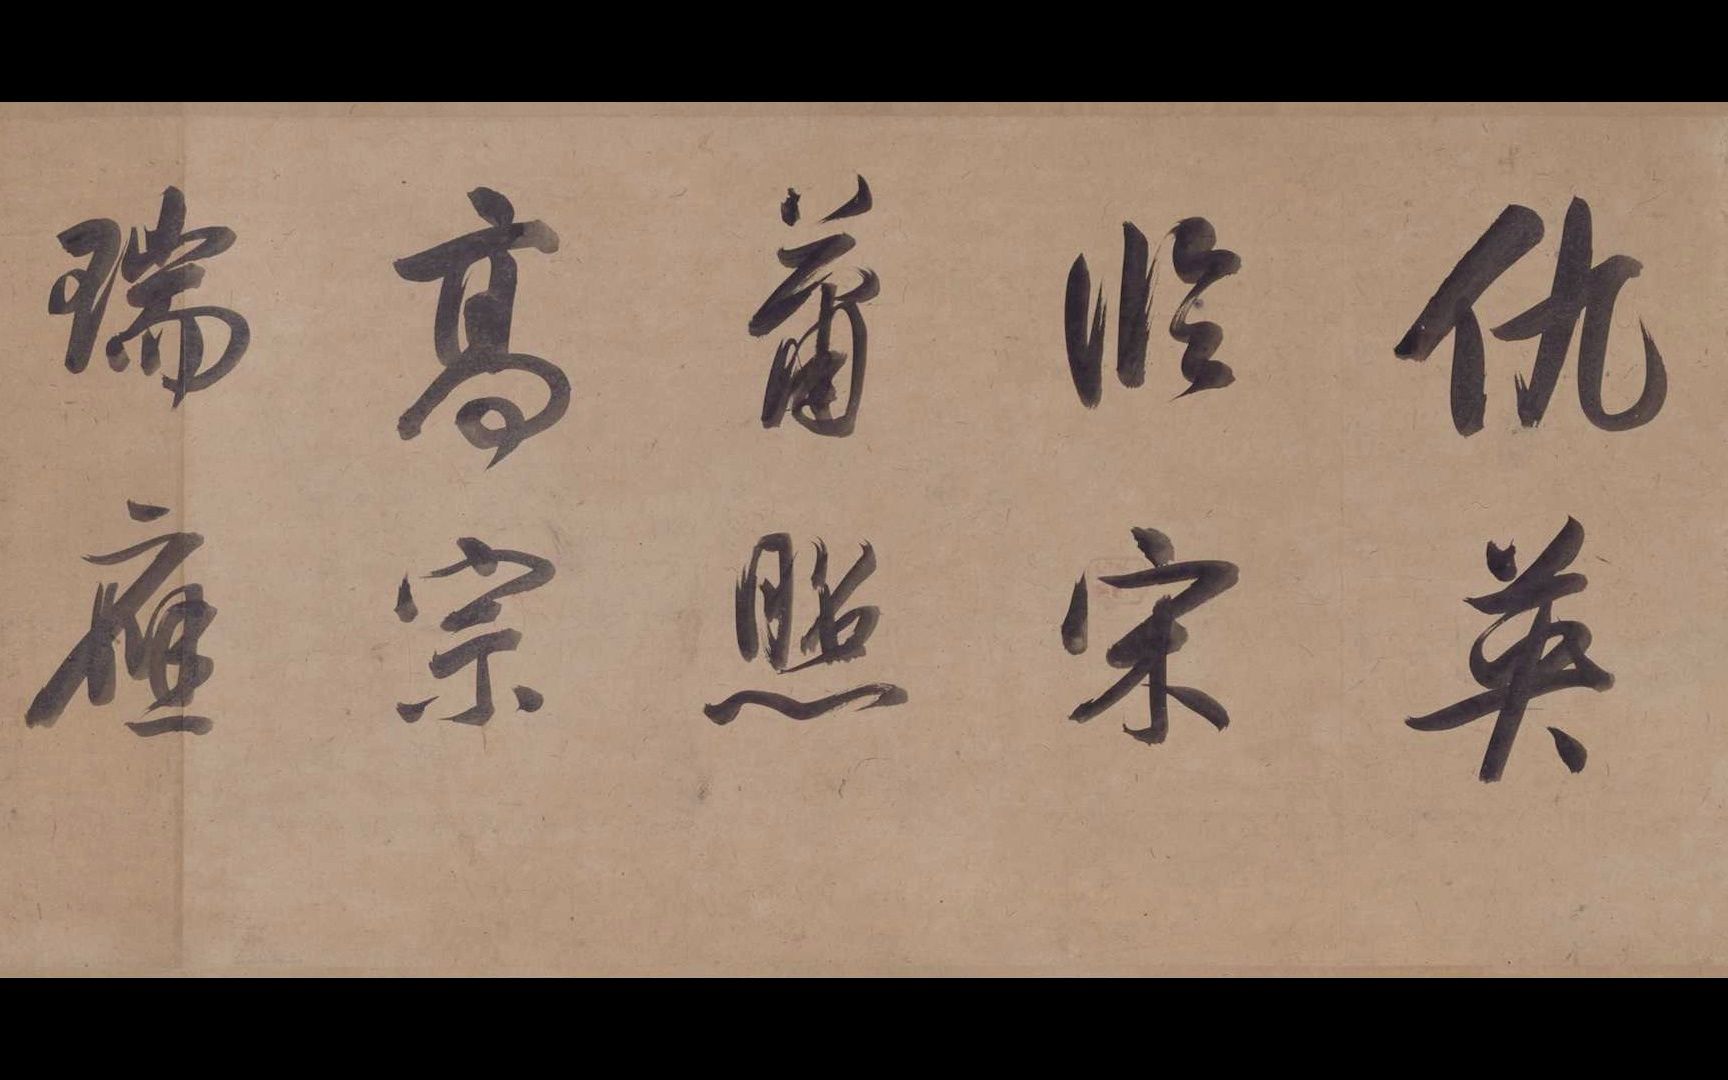 仇英
臨宋
蕭照
高宗
瑞應